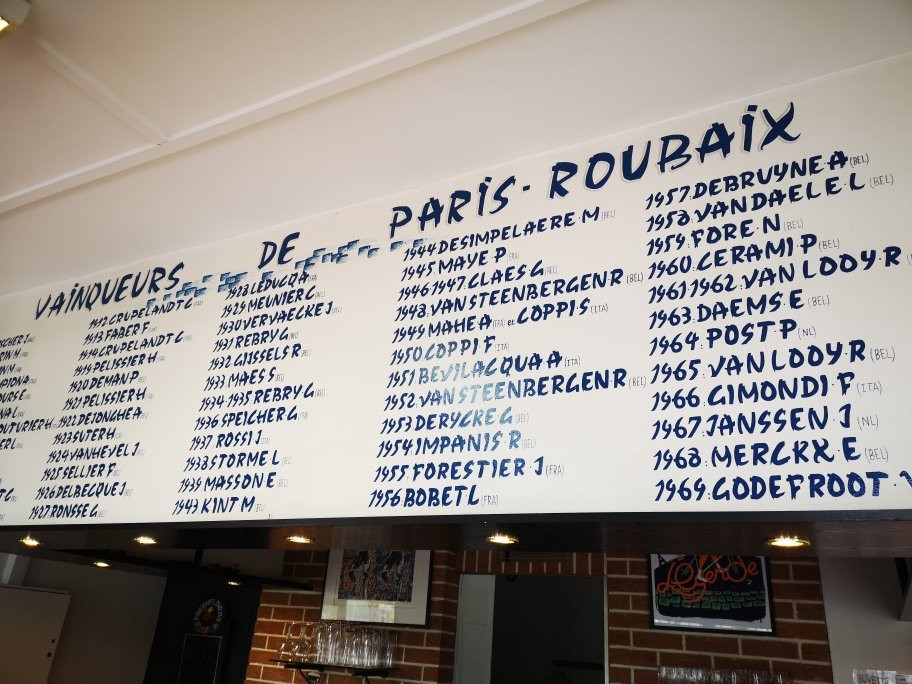 VAINQUEURS DE PARIS-ROUBAIX
1912 CRUPELANDT G
1913 FABER F
1914 CRUPELANDT G
1919 PELISSIER H
1920 DEMAN P
1921 PELISSIER H
1922 DEJONGHE A
1923 SUTER H
1924 VANHEVEL J
1925 SELLIER F
1926 DELBECQUE J
1927 RONSSE G
1928 LEDUCQ A
1929 MEUNIER C
1930 VERVAECKE J
1931 REBRY G
1932 GIJSSELS R
1933 MAES S
1934-1935 REBRY G
1936 SPEICHER G
1937 ROSSI J
1938 STORME L
1939 MASSON E
1943 KINT M
1944 DESIMPELAERE·M (BEL)
1945 MAYE P (FRA)
1946 1947 CLAES G (BEL)
1948 VANSTEENBERGEN R (BEL)
1949 MAHE A (FRA) et COPPI S (ITA)
1950 COPPI F (ITA)
1951 BEVILACQUA A (ITA)
1952 VANSTEENBERGEN R (BEL)
1953 DERYCKE G (BEL)
1954 IMPANIS R (BEL)
1955 FORESTIER J (FRA)
1956 BOBET L (FRA)
1957.DEBRUYNE·A (BEL)
1958.VANDAELE·L (BEL)
1959.FORE.N (BEL)
1960.CERAMI·P (BEL)
1961.1962.VAN LOOY·R
1963.DAEMS·E (BEL)
1964.POST·P (NL)
1965.VAN LOOY·R (BEL)
1966.GIMONDI·F (ITA)
1967.JANSSEN J (NL)
1968.MERCKX·E (BEL)
1969:GODEFROOT